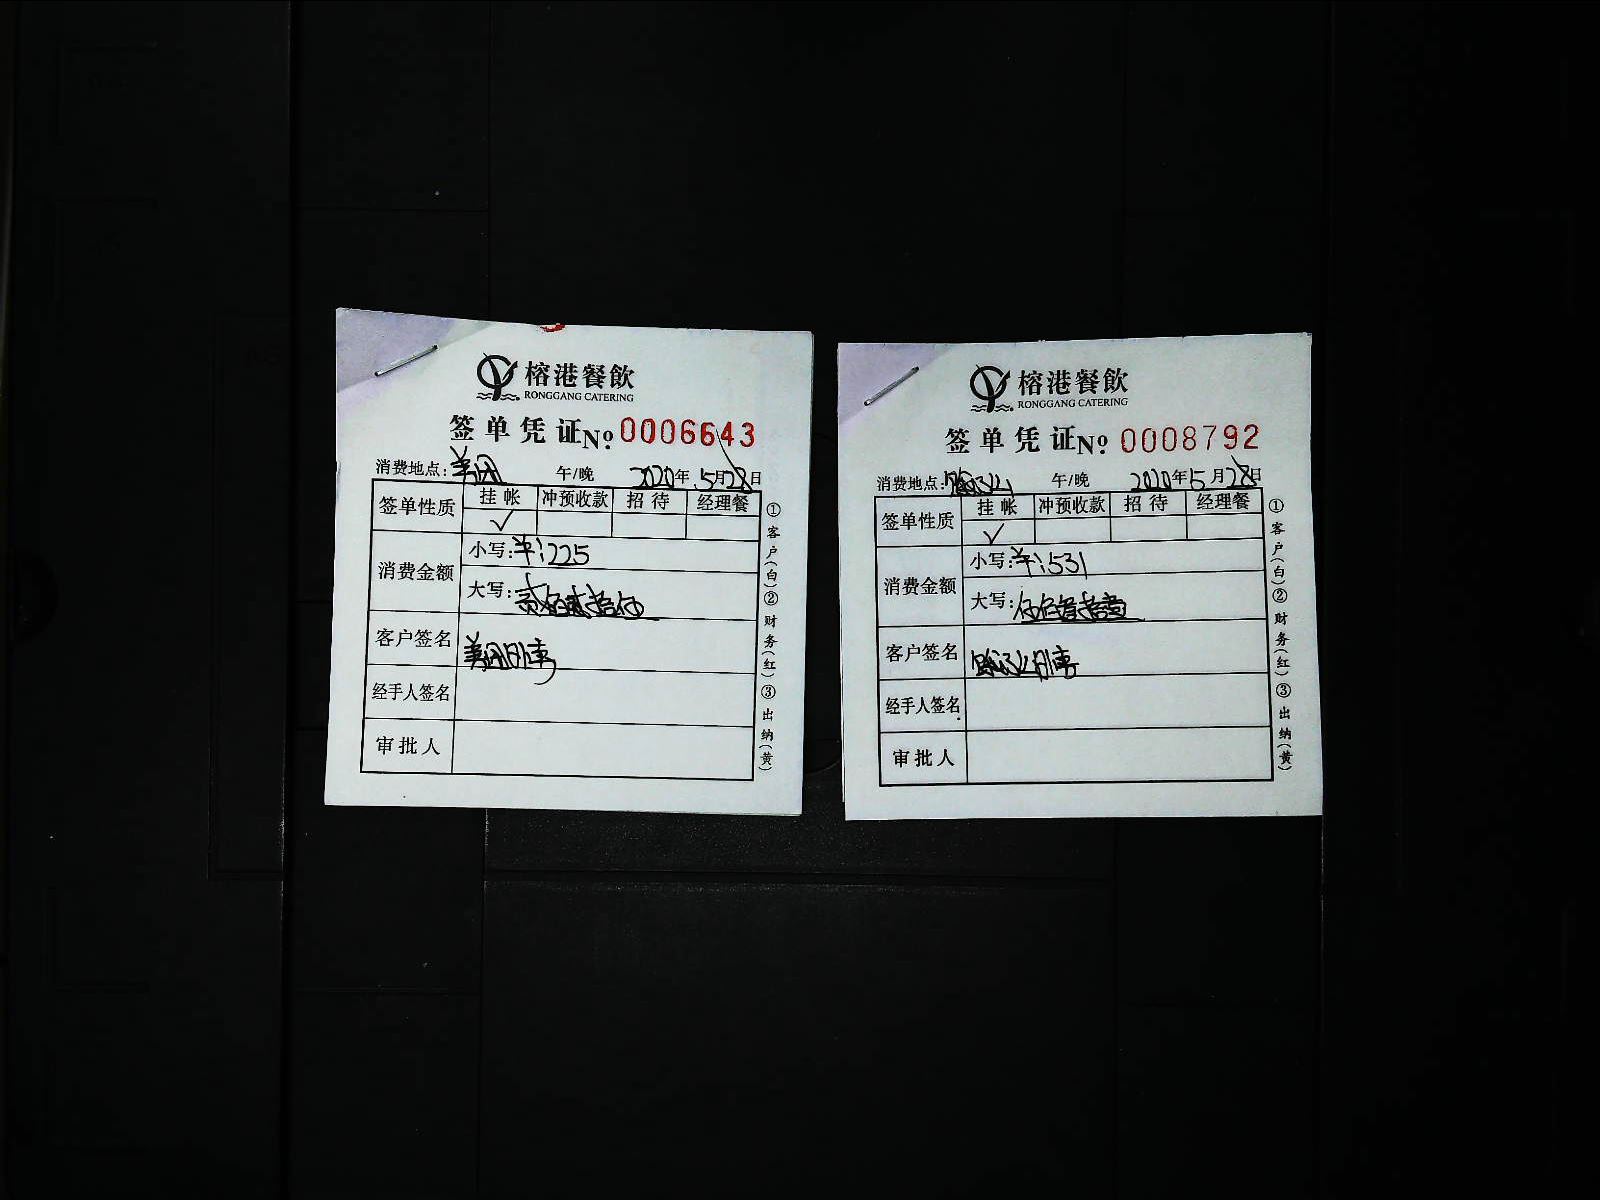 榕港餐飲
RONGGANG CATERING
签单凭证 № 0006643
消费地点: 午/晚 2020年 5月28日
签单性质 挂帐 冲预收款 招待 经理餐
✓
消费金额
小写:¥:225
大写:贰佰贰拾伍
客户签名
经手人签名
审批人
①客户(白)②财务(红)③出纳(黄)
榕港餐飲
RONGGANG CATERING
签单凭证 № 0008792
消费地点: 午/晚 2020年 5月28日
签单性质 挂帐 冲预收款 招待 经理餐
✓
消费金额
小写:¥:531
大写:伍佰叁拾壹
客户签名
经手人签名
审批人
①客户(白)②财务(红)③出纳(黄)